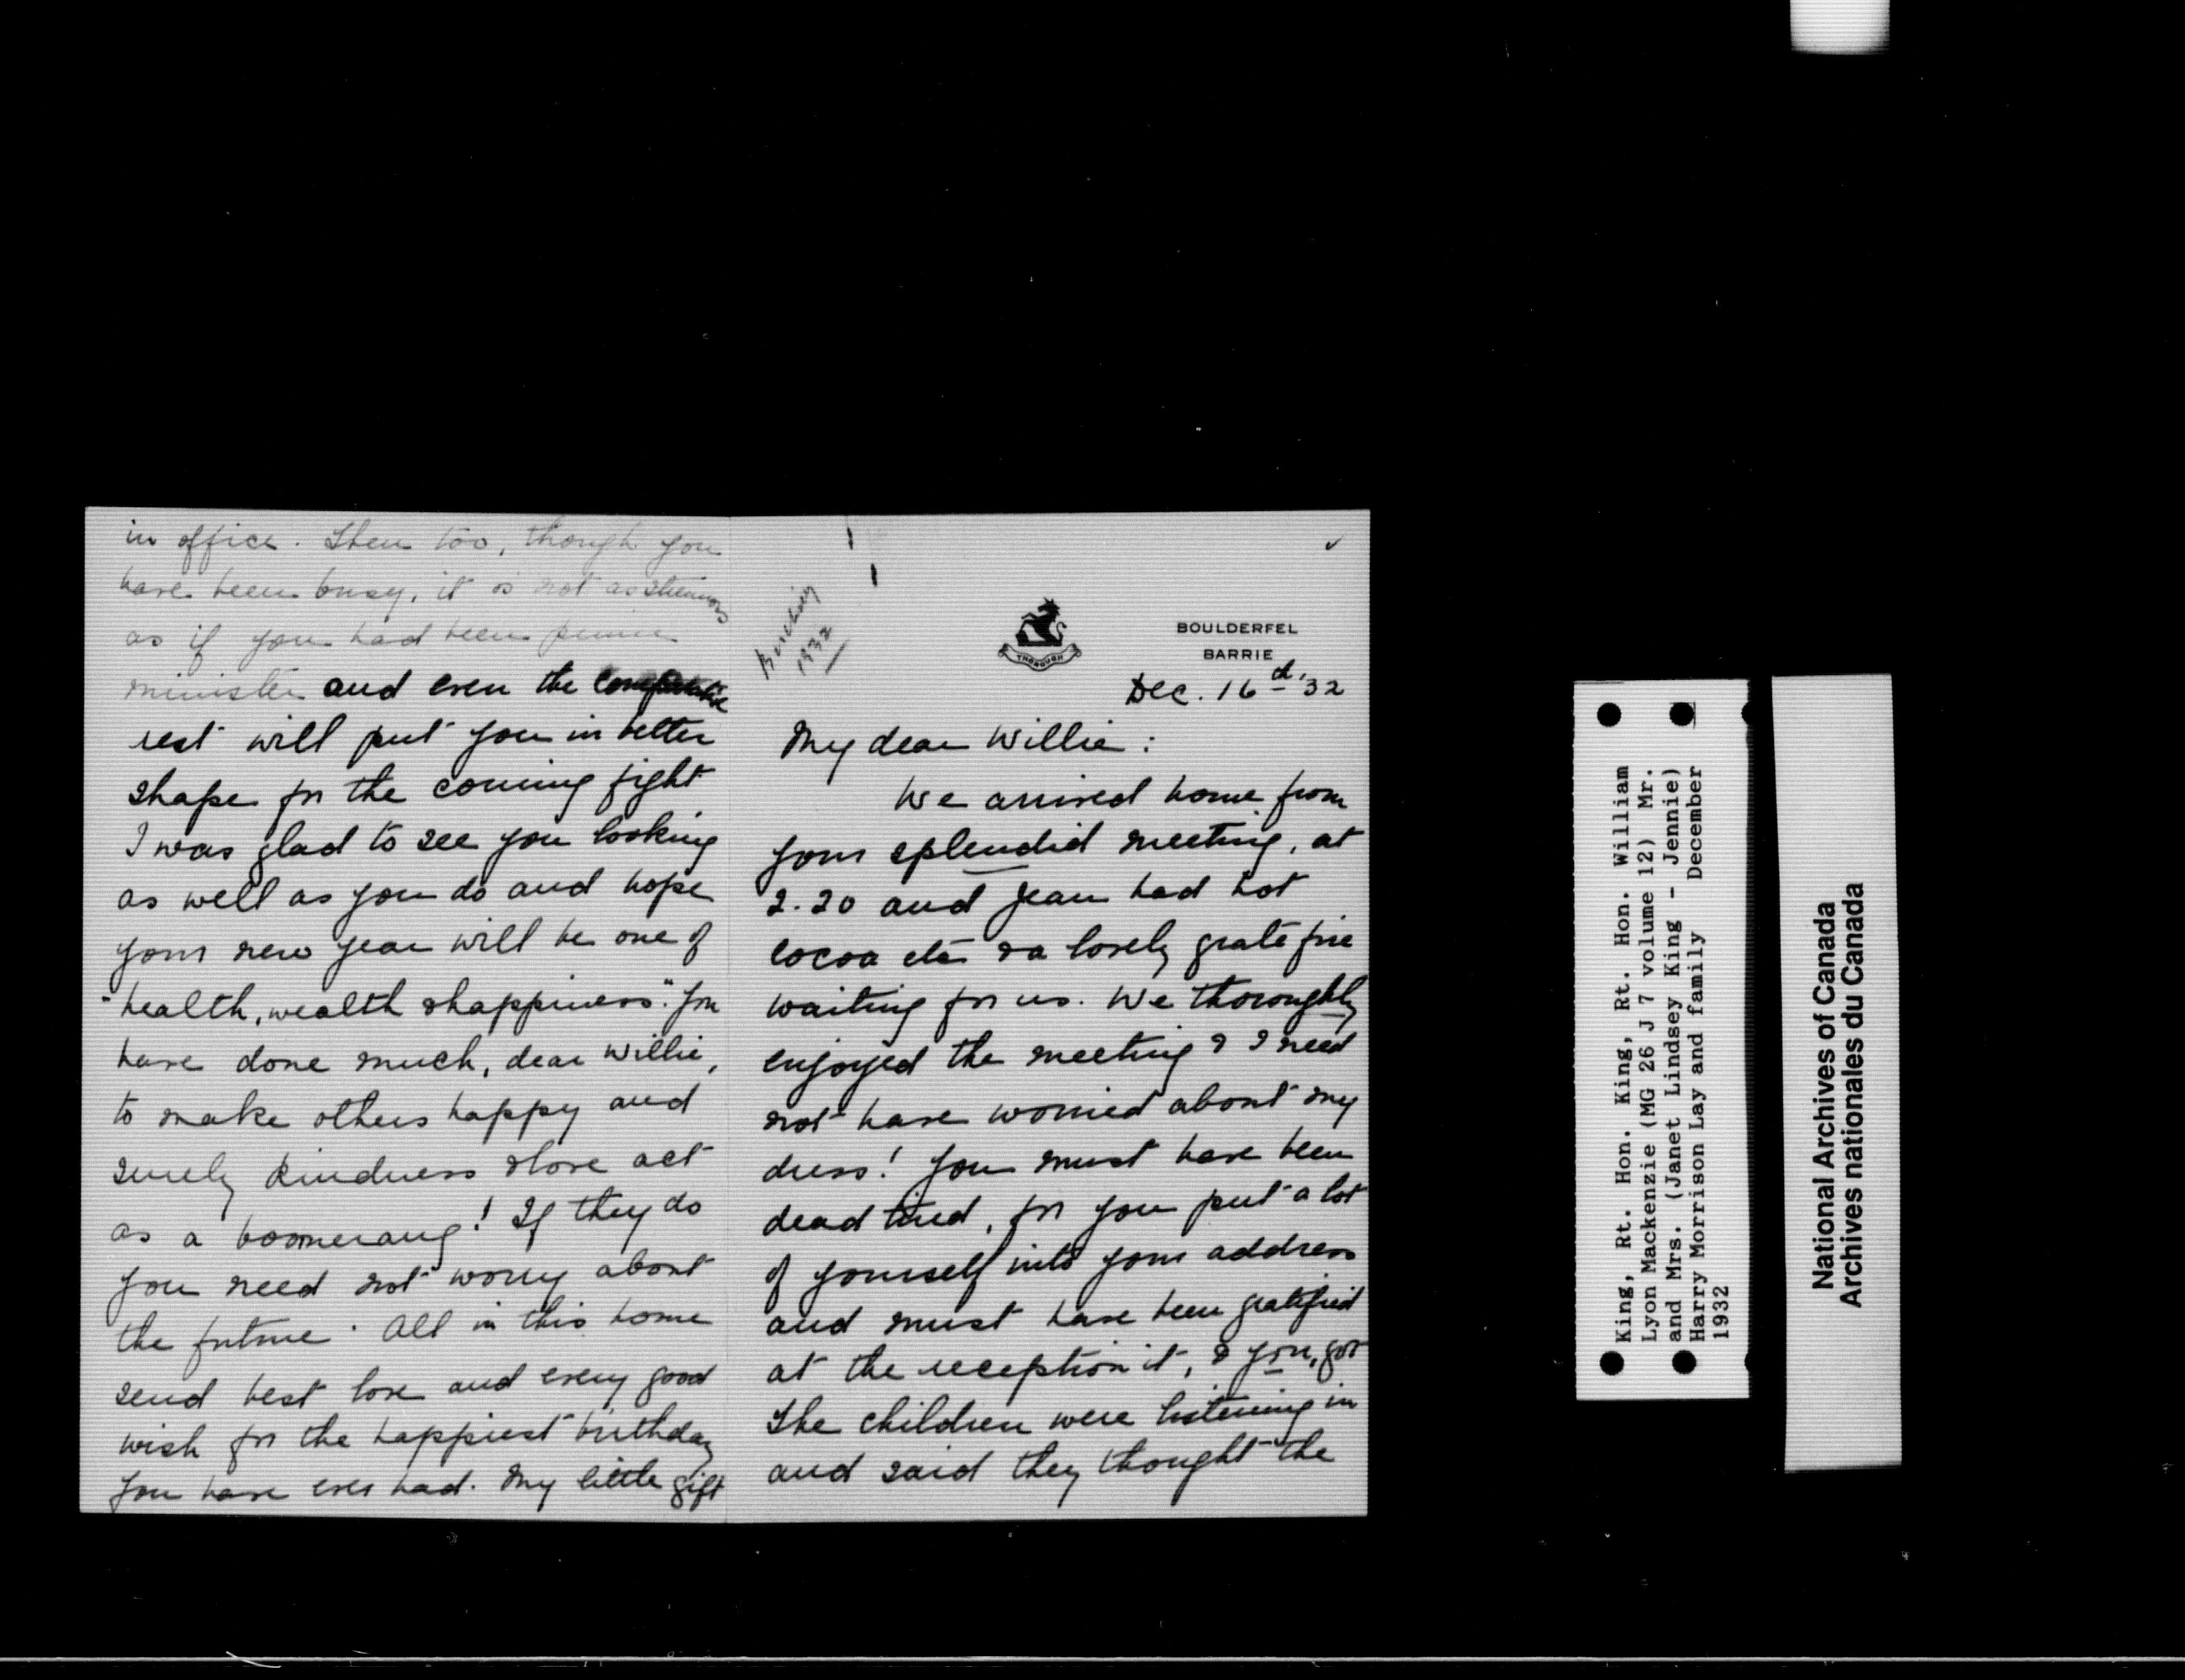 in office. Then too, though you
have been busy, it is not as strenuous
as if you had been prime
minister and even the comparative
rest will put you in better
shape for the coming fight
I was glad to see you looking
as well as you do and hope
your new year will be one of
"health, wealth & happiness". You
have done much, dear Willie,
to make others happy and
surely kindness & love act
as a boomerang! If they do
you need not worry about
the future. All in this home
send best love and every good
wish for the happiest birthday
you have ever had. My little gift
Birthday
1932
THOROUGH
BOULDERFEL
BARRIE
Dec. 16th '32
My dear Willie:
We arrived home from
your splendid meeting, at
2.20 and Jean had hot
cocoa etc & a lovely grate fire
waiting for us. We thoroughly
enjoyed the meeting & I need
not have worried about my
dress! You must have been
dead tired, for you put a lot
of yourself into your address
and must have been gratified
at the reception it, & you, got
The children were listening in
and said they thought the
King, Rt. Hon. King, Rt. Hon. William
Lyon Mackenzie (MG 26 J 7 volume 12) Mr.
and Mrs. (Janet Lindsey King - Jennie)
Harry Morrison Lay and family December
1932
National Archives of Canada
Archives nationales du Canada